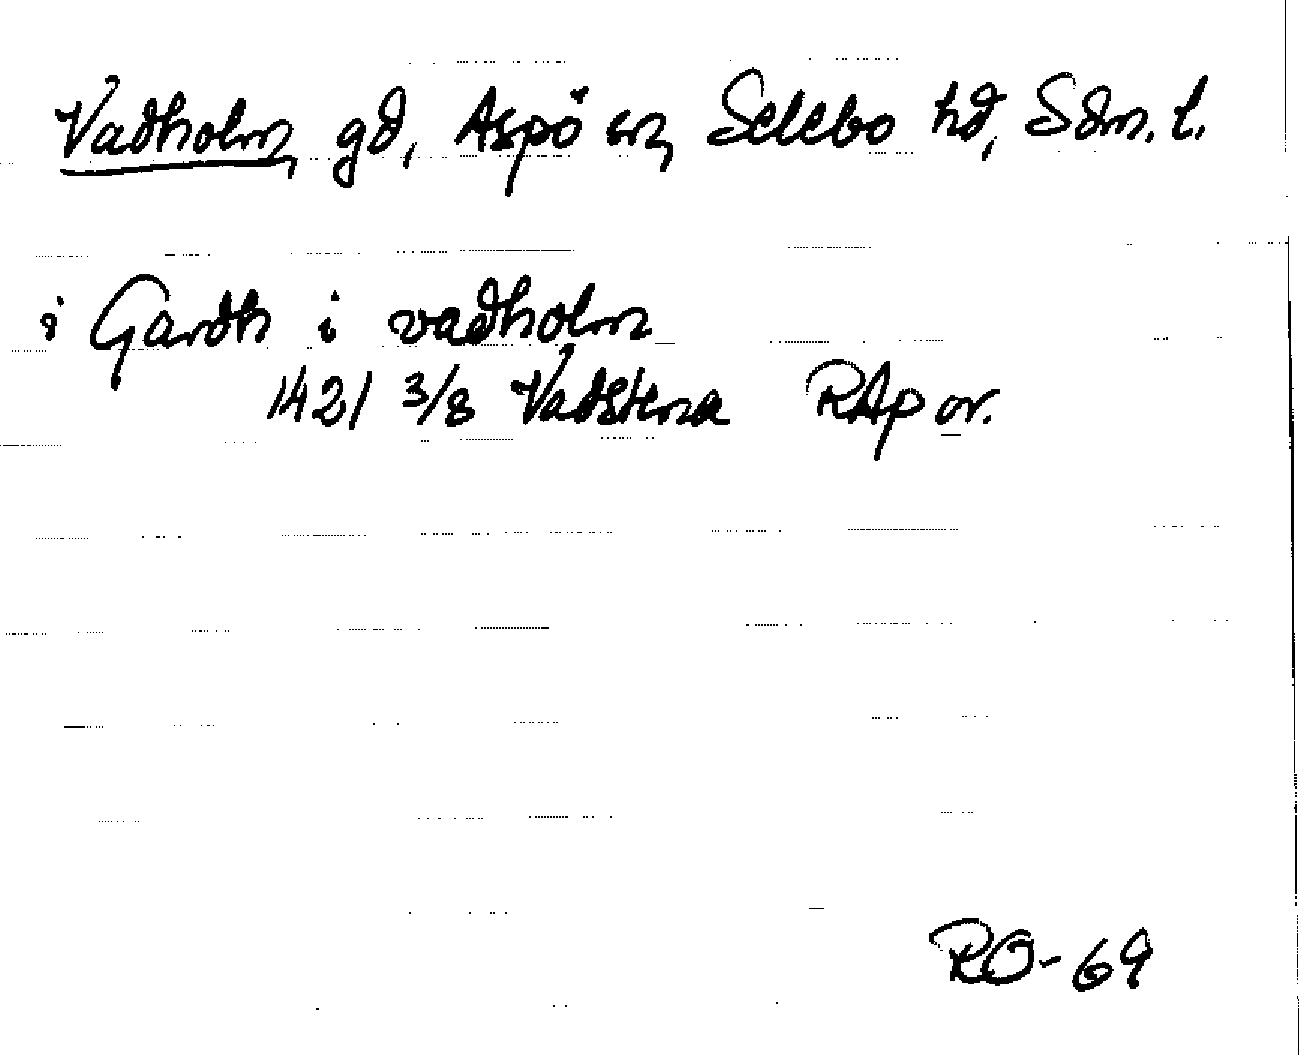 Vadholm, gd, Aspö sn, Selebo hd, Sdm. l.
i Gardh i vadholm
1421 3/8 Vadstena RAp or.
RO-69